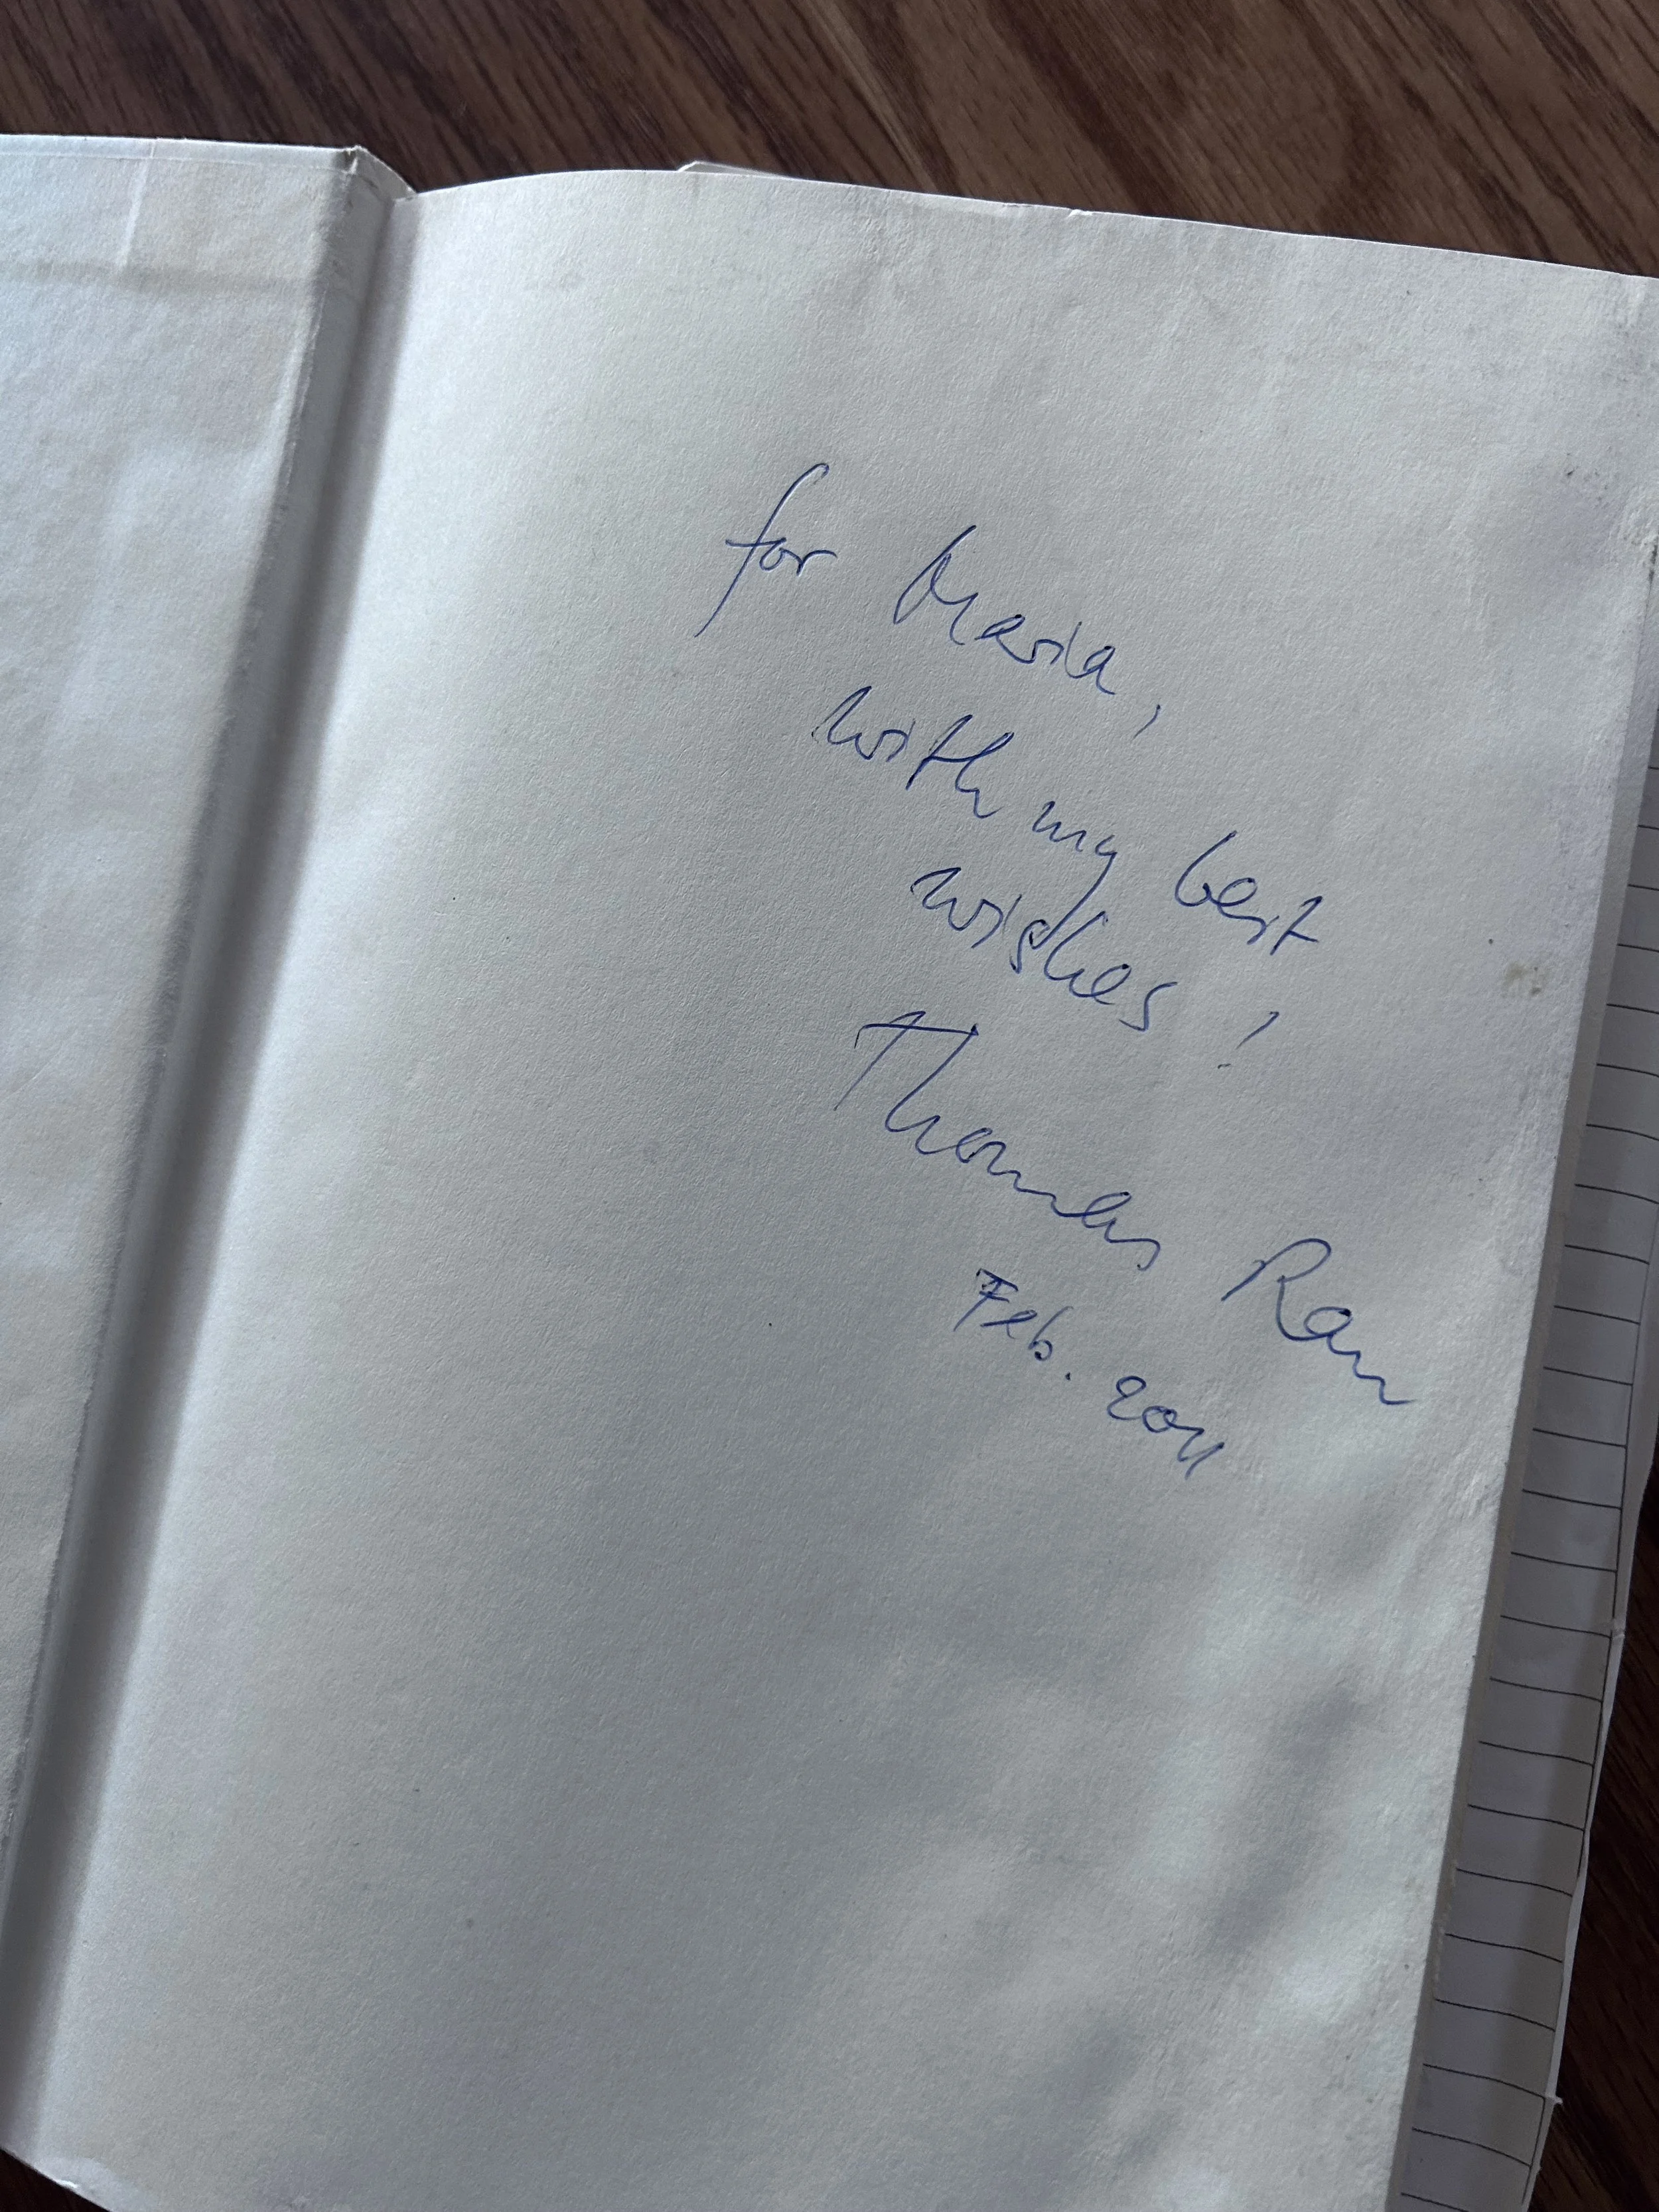 for Maria,
with my best
wishes!
Thomas Rau
Feb. 2011